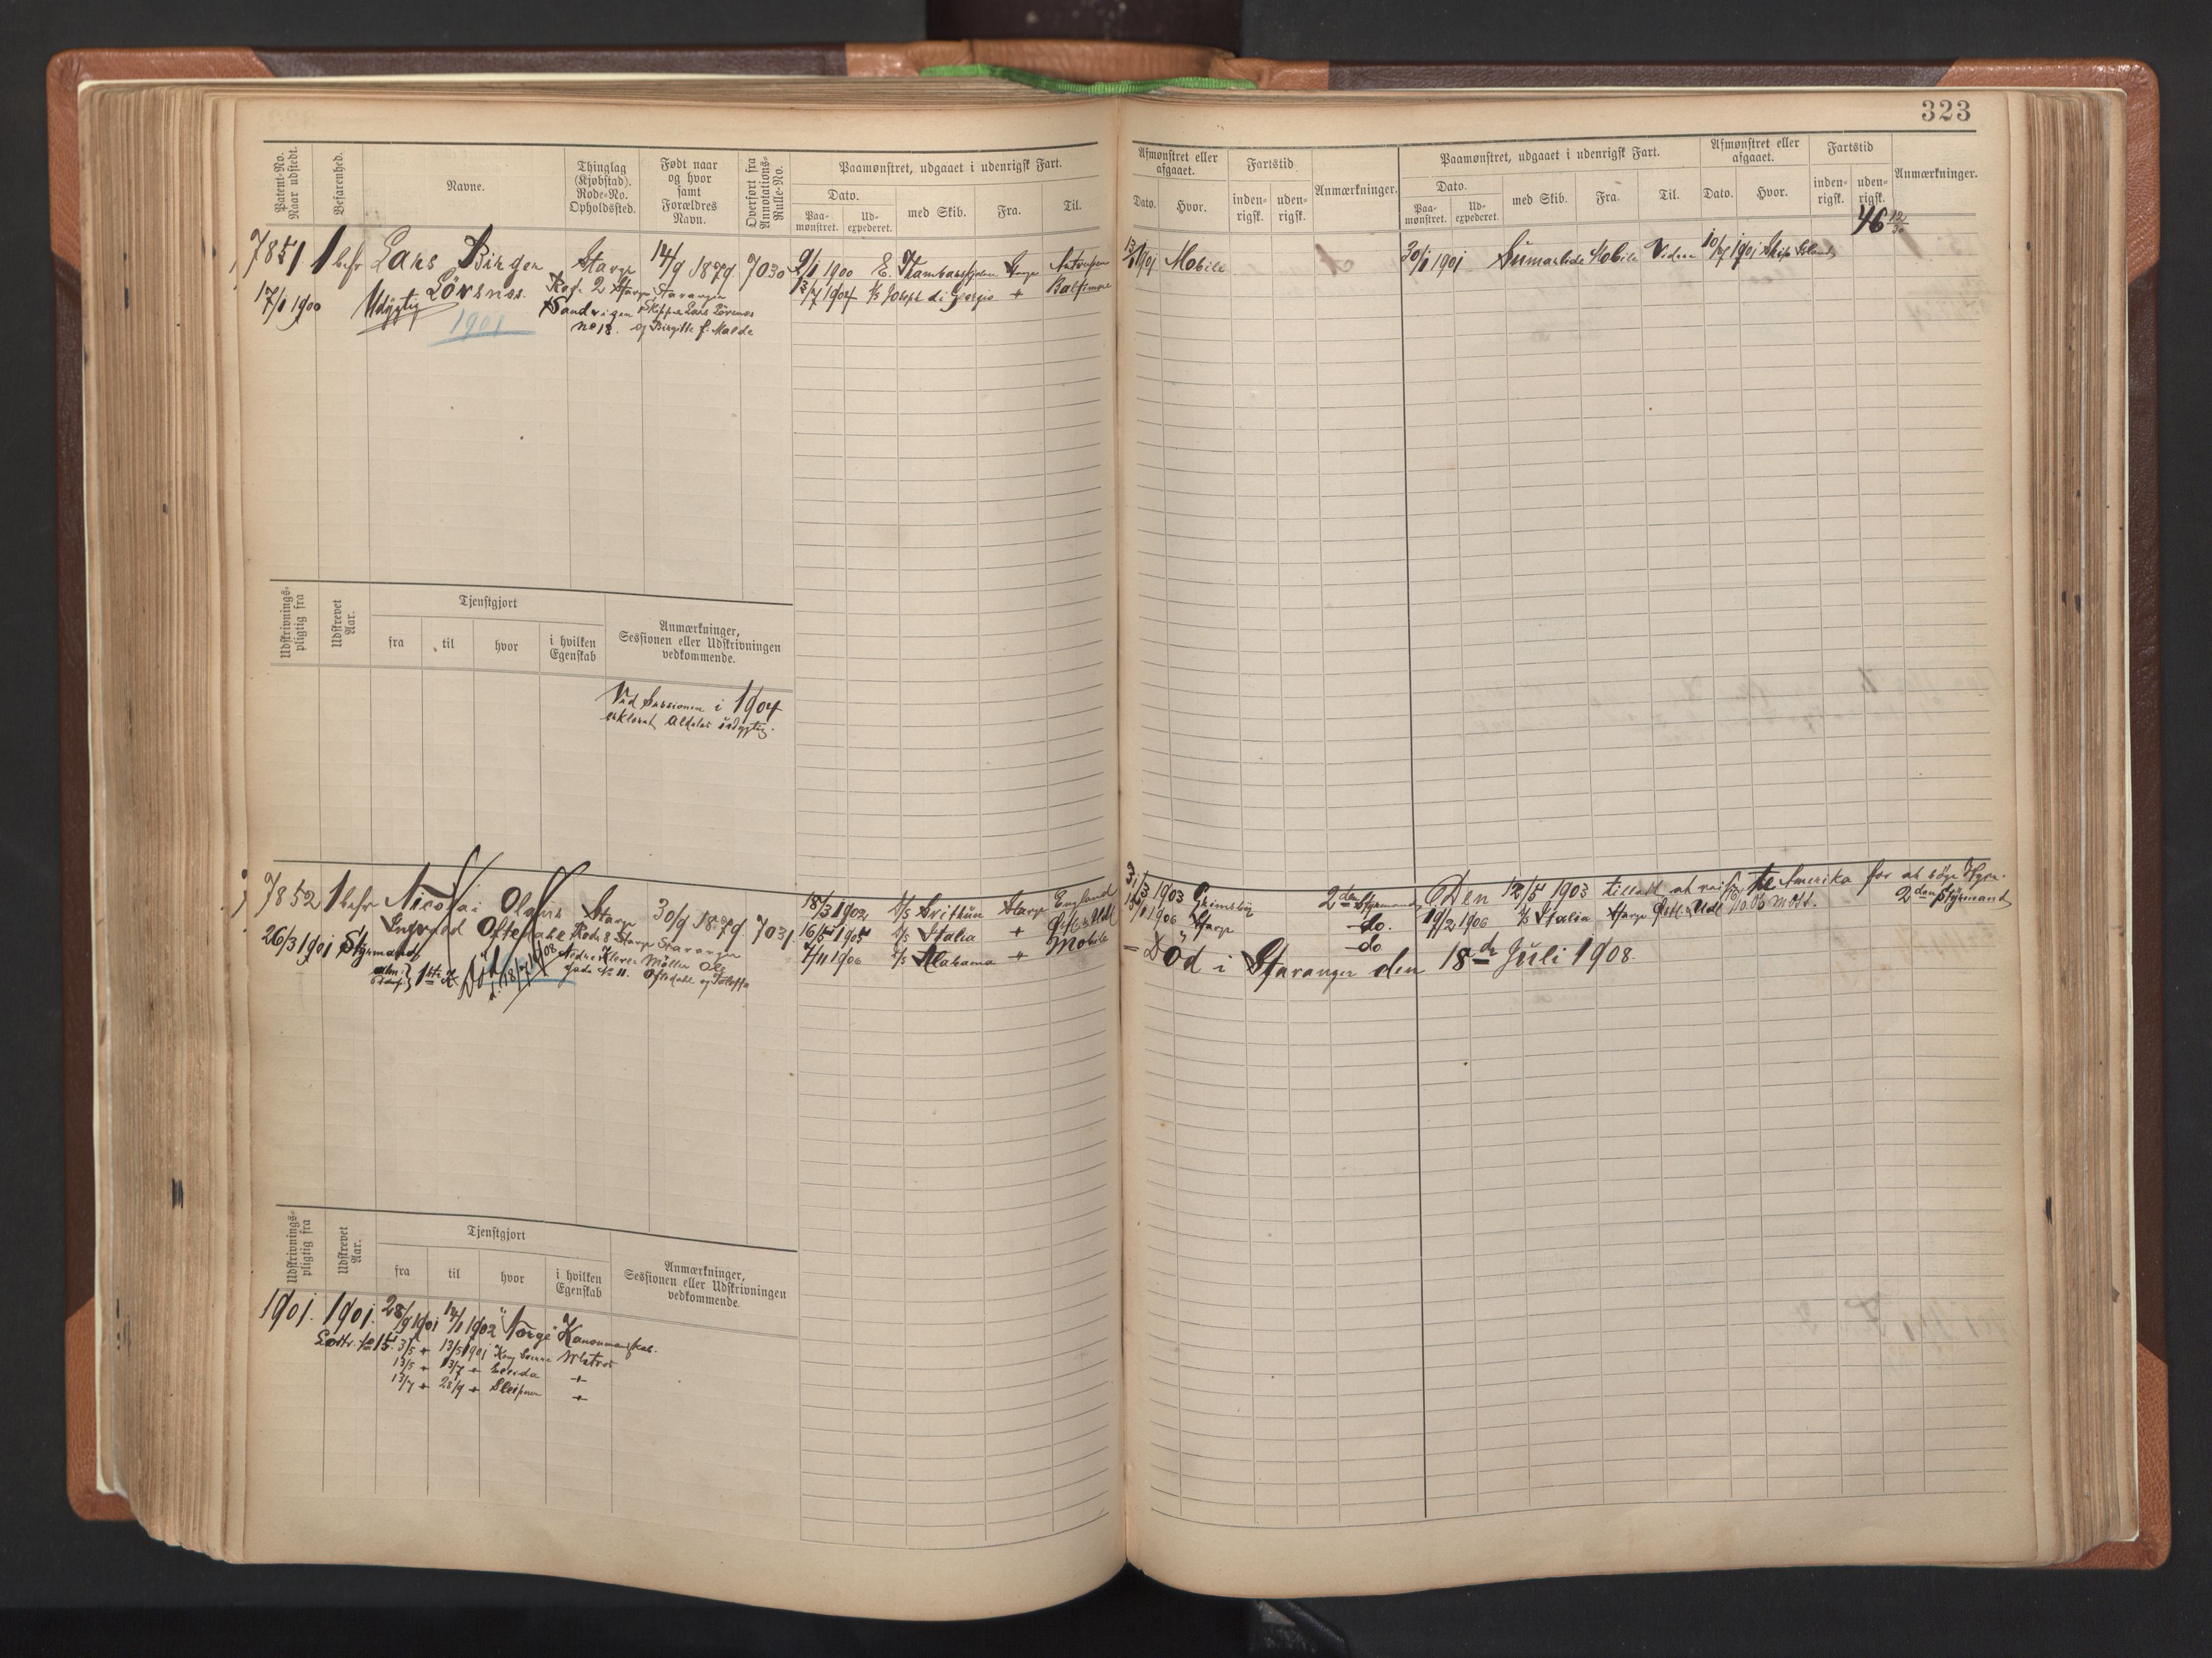 323
Patent-No. Naar udstedt.
Befarenhed.
Navne.
Thinglag (Kjøbstad). Rode-No. Opholdssted.
Født naar og hvor samt Forældres Navn.
Overført fra Annotations-Rulle-No.
Paamønstret, udgaaet i udenrigsk Fart.
Dato.
Paa-mønstret.
Ud-expederet.
med Skib.
Fra.
Til.
Afmønstret eller afgaaet.
Dato.
Hvor.
Fartstid
inden-rigsk.
uden-rigsk.
Anmærkninger.
Paamønstret, udgaaet i udenrigsk Fart.
Dato.
Paa-mønstret.
Ud-expederet.
med Skib.
Fra.
Til.
Afmønstret eller afgaaet.
Dato.
Hvor.
Fartstid
inden-rigsk.
uden-rigsk.
Anmærkninger.
46 12/30
7851 1 befr Lars Birger Stavgr 14/9 1879 7030 9/1 1900 Stavgr Antwerpen
Lövsnes Rode 2 Stavgr Stavanger
17/1 1900 Udygtig 13/7 1904 S/S Joseph di Giorgio + Baltimore
Sandvigen Skipper Lars Lövsnes
1901 No 18. og Birgitte f. Malde
13/1 1901 Mobile 30/1 1901 Sumarlide Mobile Viden 10/7 1901
Udskrivnings-pligtig fra
Udskrevet Aar.
Tjenstgjort
fra
til
hvor
i hvilken Egenskab
Anmærkninger, Sessionen eller Udskrivningen vedkommende.
Ved Sessionen i 1904
erklæret aldeles udygtig.
7852 1 befr Nicolai Olaves Stavgr 30/9 1879 7031 18/3 1902 S/S Svithun Stavgr England
Ingvald Oftedahl Rode 8 Stavgr Stavanger 16/5 1905 S/S Italia + Østl. & Udl
26/3 1901 Styrmand Nedre Kleve Møller Ole 7/11 1906 S/S Alabama + Mobile
1ste Kl. Död 18/7 1908 gade No 11. Oftedahl og
3/3 1903 Grimsby 2den Styrmand Den 12/5 1903 tilladt at reise til Amerika for at söge Hyre.
1906 Stavgr do. 19/2 1906 S/S Italia Stavgr Østl. & Udl 2den Styrmand
= " do
Död i Stavanger den 18de Juli 1908.
Udskrivnings-pligtig fra
Udskrevet Aar.
Tjenstgjort
fra
til
hvor
i hvilken Egenskab
Anmærkninger, Sessionen eller Udskrivningen vedkommende.
1901. 1901. 28/9 1901 14/1 1902 "Norge" Kanonmandskab.
3/5 + 13/5 1901 Matros
13/5 + 13/7 + +
13/7 + 28/9 + Sleipner +